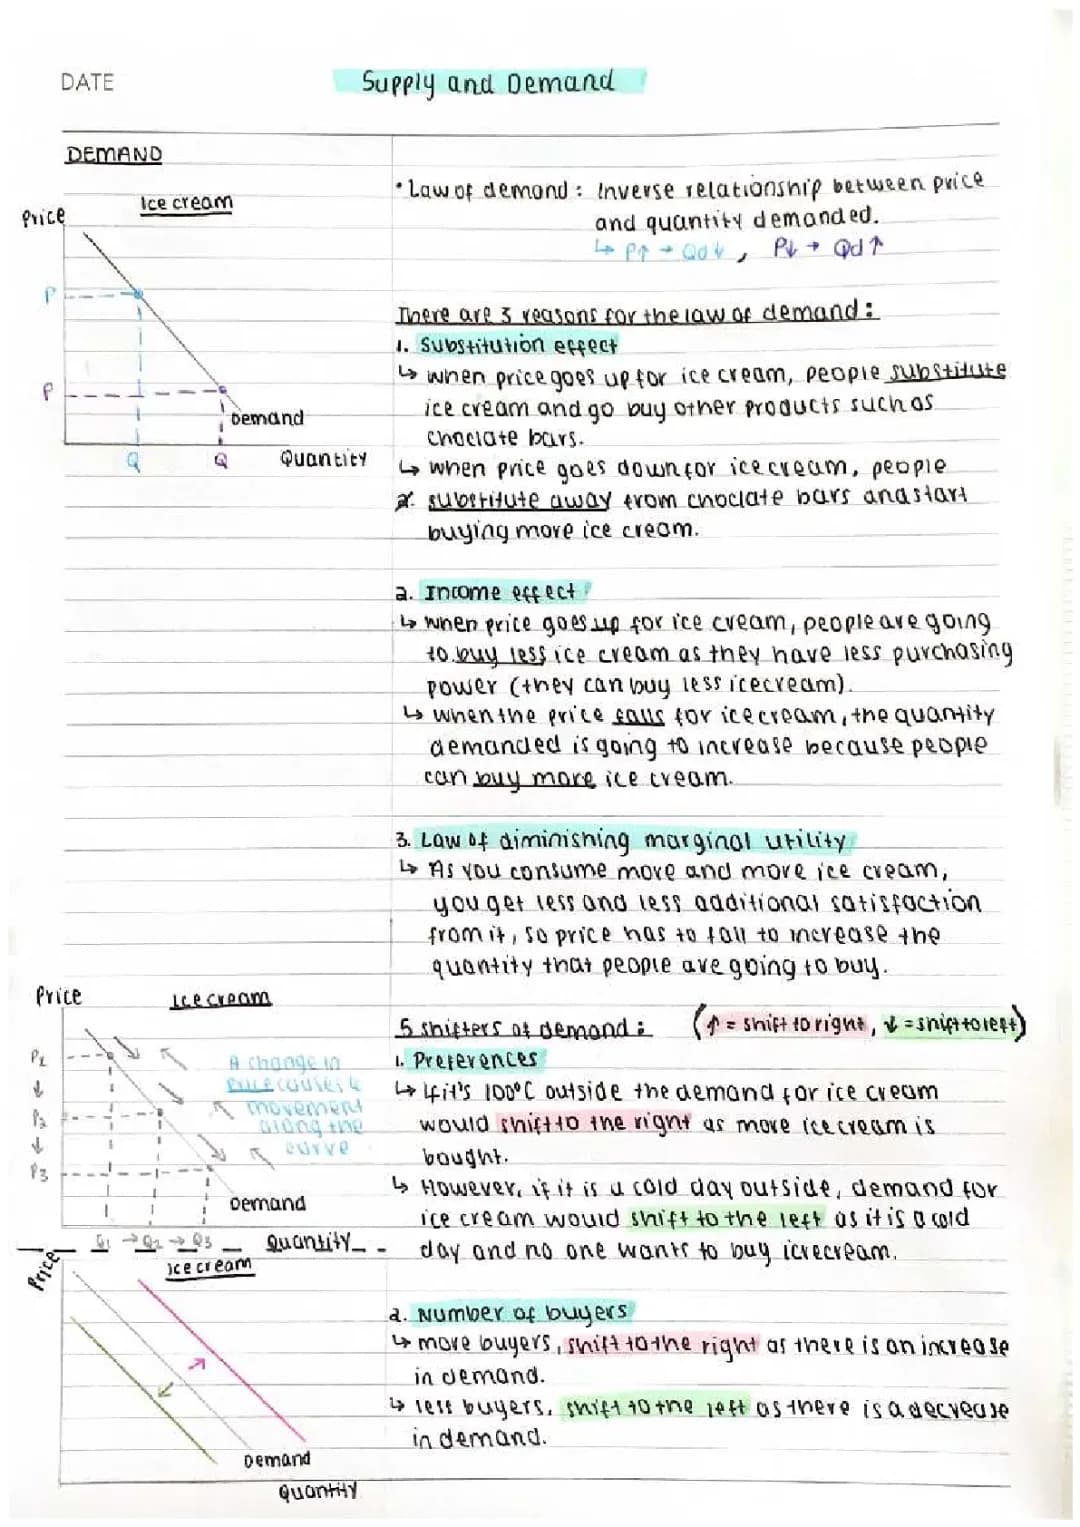 DATE
Supply and Demand
DEMAND
Ice cream
Price
P
P
Demand
Q
Q
Quantity
• Law of demand : Inverse relationship between price
and quantity demanded.
↳ P↑ → Qd↓ , P↓ → Qd↑
There are 3 reasons for the law of demand :
1. Substitution effect
↳ when price goes up for ice cream, people substitute
ice cream and go buy other products such as
choclate bars.
↳ when price goes down for ice cream, people
substitute away from choclate bars and start
buying more ice cream.
2. Income effect
↳ when price goes up for ice cream, people are going
to buy less ice cream as they have less purchasing
power (they can buy less icecream).
↳ when the price falls for icecream, the quantity
demanded is going to increase because people
can buy more ice cream.
3. Law of diminishing marginal utility
↳ As you consume more and more ice cream,
you get less and less additional satisfaction
from it, so price has to fall to increase the
quantity that people are going to buy.
Price
Ice cream
P1
↓
P2
↓
P3
A change in
price causes a
movement
along the
curve
Demand
Q1 → Q2 → Q3
Quantity
5 shifters of demand : (↑ = shift to right, ↓ = shift to left)
1. Preferences
↳ If it's 100°C outside the demand for ice cream
would shift to the right as more icecream is
bought.
↳ However, if it is a cold day outside, demand for
ice cream would shift to the left as it is a cold
day and no one wants to buy icrecream.
Price
Ice cream
Demand
Quantity
2. Number of buyers
↳ more buyers, shift to the right as there is an increase
in demand.
↳ less buyers, shift to the left as there is a decrease
in demand.